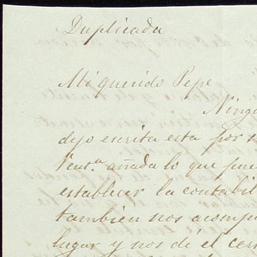 Duplicada
Mi querido Pepe
Ning
dejo escrita esta por s
Vent.ª añada lo que pue
establecer la contabil
tambien nos acompa
lugar y nos dé el cer